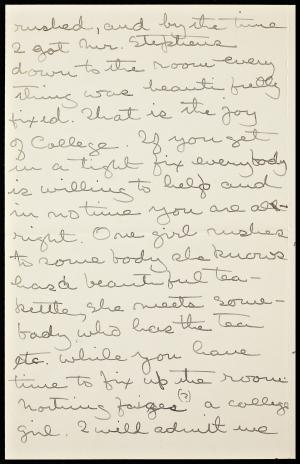 rushed, and by the time
I got Mr. Stephens
down to the room every
thing was beautifully
fixed. That is the joy
of College. If you get
in a tight fix everybody
is willing to help and
in no time you are all-
right. One girl rushes
to some body she knows
has a beautiful tea-
kettle, she meets some-
body who has the tea
etc. while you have
time to fix up the room.
Nothing fazes (?) a college
girl. I will admit we